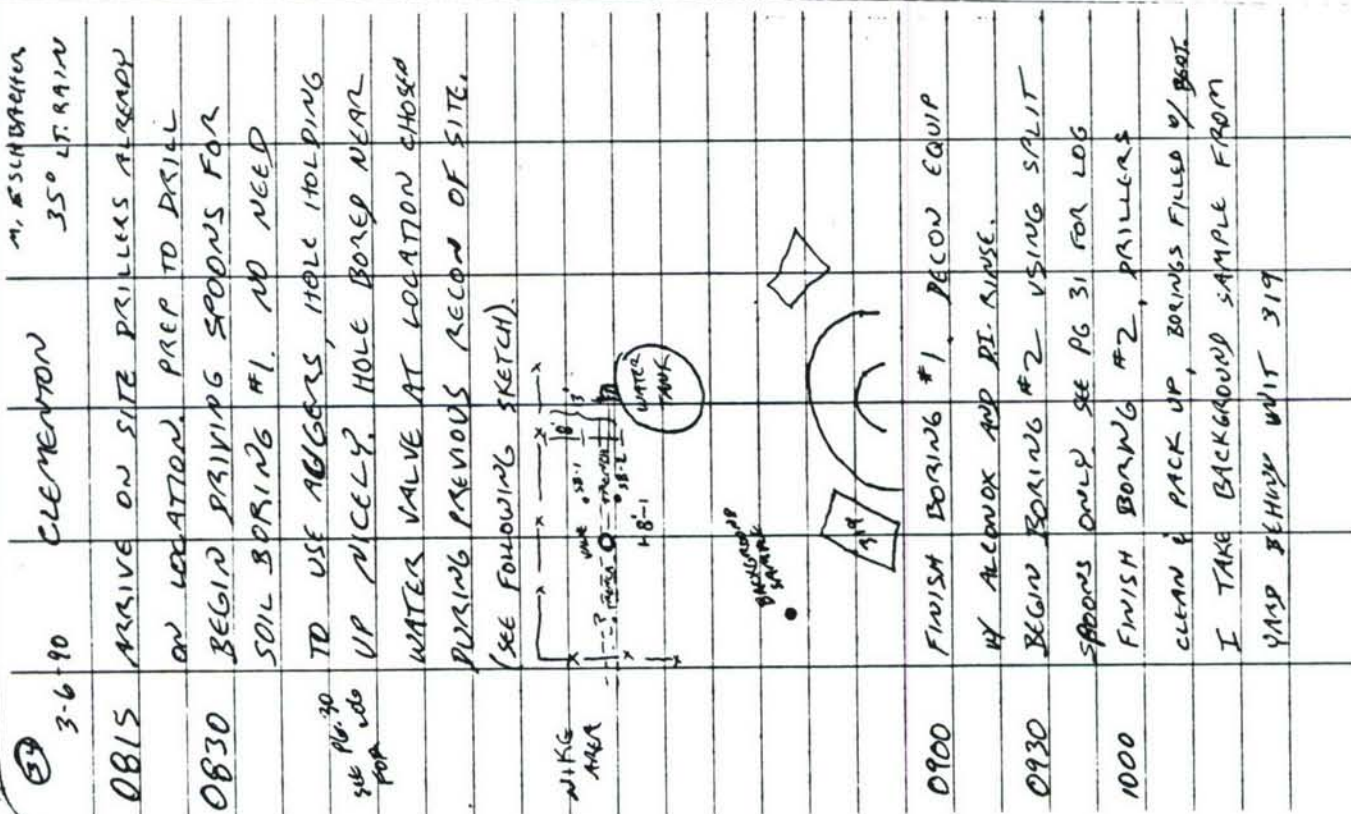 34
3-6-90 CLEMENTON M. ESCHBACHER
35° LT. RAIN
0815 ARRIVE ON SITE DRILLERS ALREADY
ON LOCATION. PREP TO DRILL
0830 BEGIN DRIVING SPOONS FOR
SOIL BORING #1. NO NEED
TO USE AUGERS, HOLE HOLDING
SEE PG. 30 FOR LOG
UP NICELY. HOLE BORED NEAR
WATER VALVE AT LOCATION CHOSEN
DURING PREVIOUS RECON OF SITE.
(SEE FOLLOWING SKETCH).
NIKE AREA
8' 3'
VALVE SB-1
TRENCH
SB-2
WATER
TANK
BACKGROUND
SAMPLE
319
0900 FINISH BORING #1, DECON EQUIP
W/ ALCONOX AND DI. RINSE.
0930 BEGIN BORING #2 USING SPLIT
SPOONS ONLY SEE PG 31 FOR LOG
1000 FINISH BORING #2, DRILLERS
CLEAN & PACK UP, BORINGS FILLED W/ BENT.
I TAKE BACKGROUND SAMPLE FROM
YARD BEHIND UNIT 319